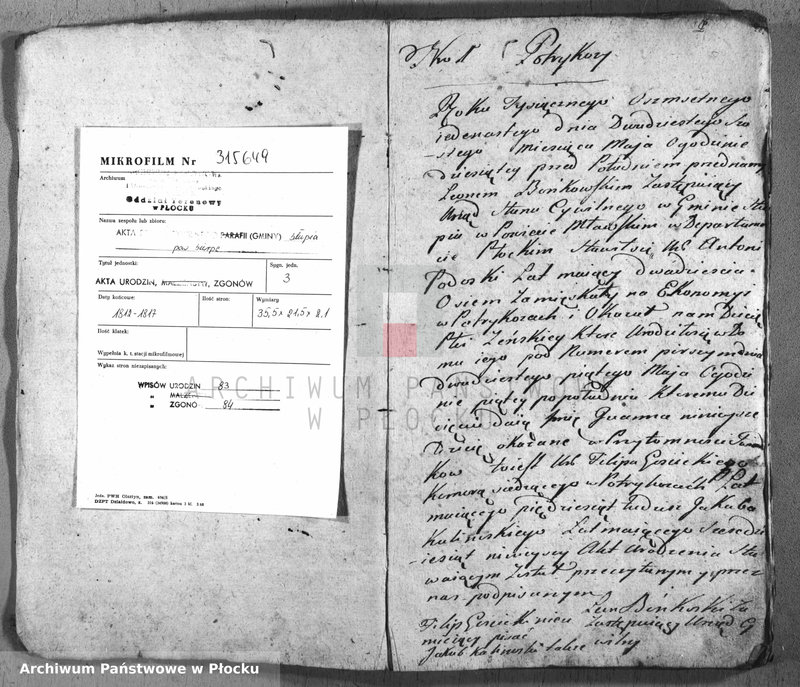 MIKROFILM Nr 315649
Archiwum
Oddział Terenowy
w PŁOCKU
Nazwa zespołu lub zbioru:
AKTA PARAFII (GMINY) Słupia
pow.
Tytuł jednostki:
Sygn. jedn.
3
AKTA URODZIN, ZGONÓW
Daty końcowe:
Ilość stron:
Wymiary
1811-1817
35,5 x 21,5 x 2.1
Ilość klatek:
Wypełnia k. t. stacji mikrofilmowej
Wykaz stron niezapisanych:
WPISÓW URODZIN 83
" ZGONO 84
Nro 1 Potrykozy
Roku Tysiącznego Osmsetnego
iedenastego dnia Dwudziestego Szo
-stego Miesiąca Maja O godzinie
dziesiątey przed Południem przed nami
Leonem Bońkowskim Zastępuiący
Urząd Stanu Cywilnego w Gminie Słu
pia w Powiecie Mławskim w Departame
cie Płockim Stawił się Ur. Antoni
Podoski Lat maiący dwadziescia
Osiem Zamięszkały na Ekonomyi
w Potrykozach i Okazał nam Dziecię
Płci Zenskiey ktore Urodziło się w Do
mu iego pod Numerem pirszym dnia
Dwudziestego piątego Maja O godzi
nie piątey po południu ktoremu Dzi
ecięciu daią imię Joanna ninieysze
Dziecię okazane w Przytomnosci Swiad
kow to iest Ur. Filipa Gosieckiego
Komorą siedzącego w Potrykozach Lat
maiącego pięćdziesiąt tudziesz Jakuba
Kalinskiego Lat maiącego Szescdzi
-iesiąt ninieyszy Akt Urodzenia Sta
waiącym Został przeczytanym y przez
nas podpisanym
Filip Gosiecki nieu Leon Bońkoski Za
mieiący pisac Zastępuiący Urząd Cy
Jakub Kalinoski takze wilny
ARCHIWUM PAŃSTWOWE
W PŁOCKU
Archiwum Państwowe w Płocku